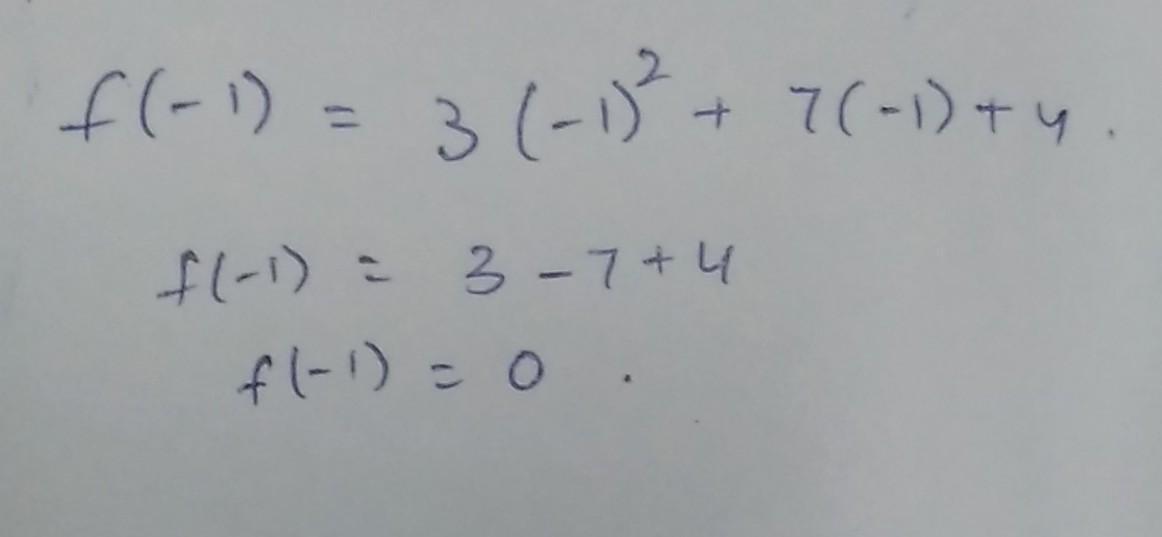 f(-1) = 3(-1)² + 7(-1) + 4.
f(-1) = 3 - 7 + 4
f(-1) = 0.